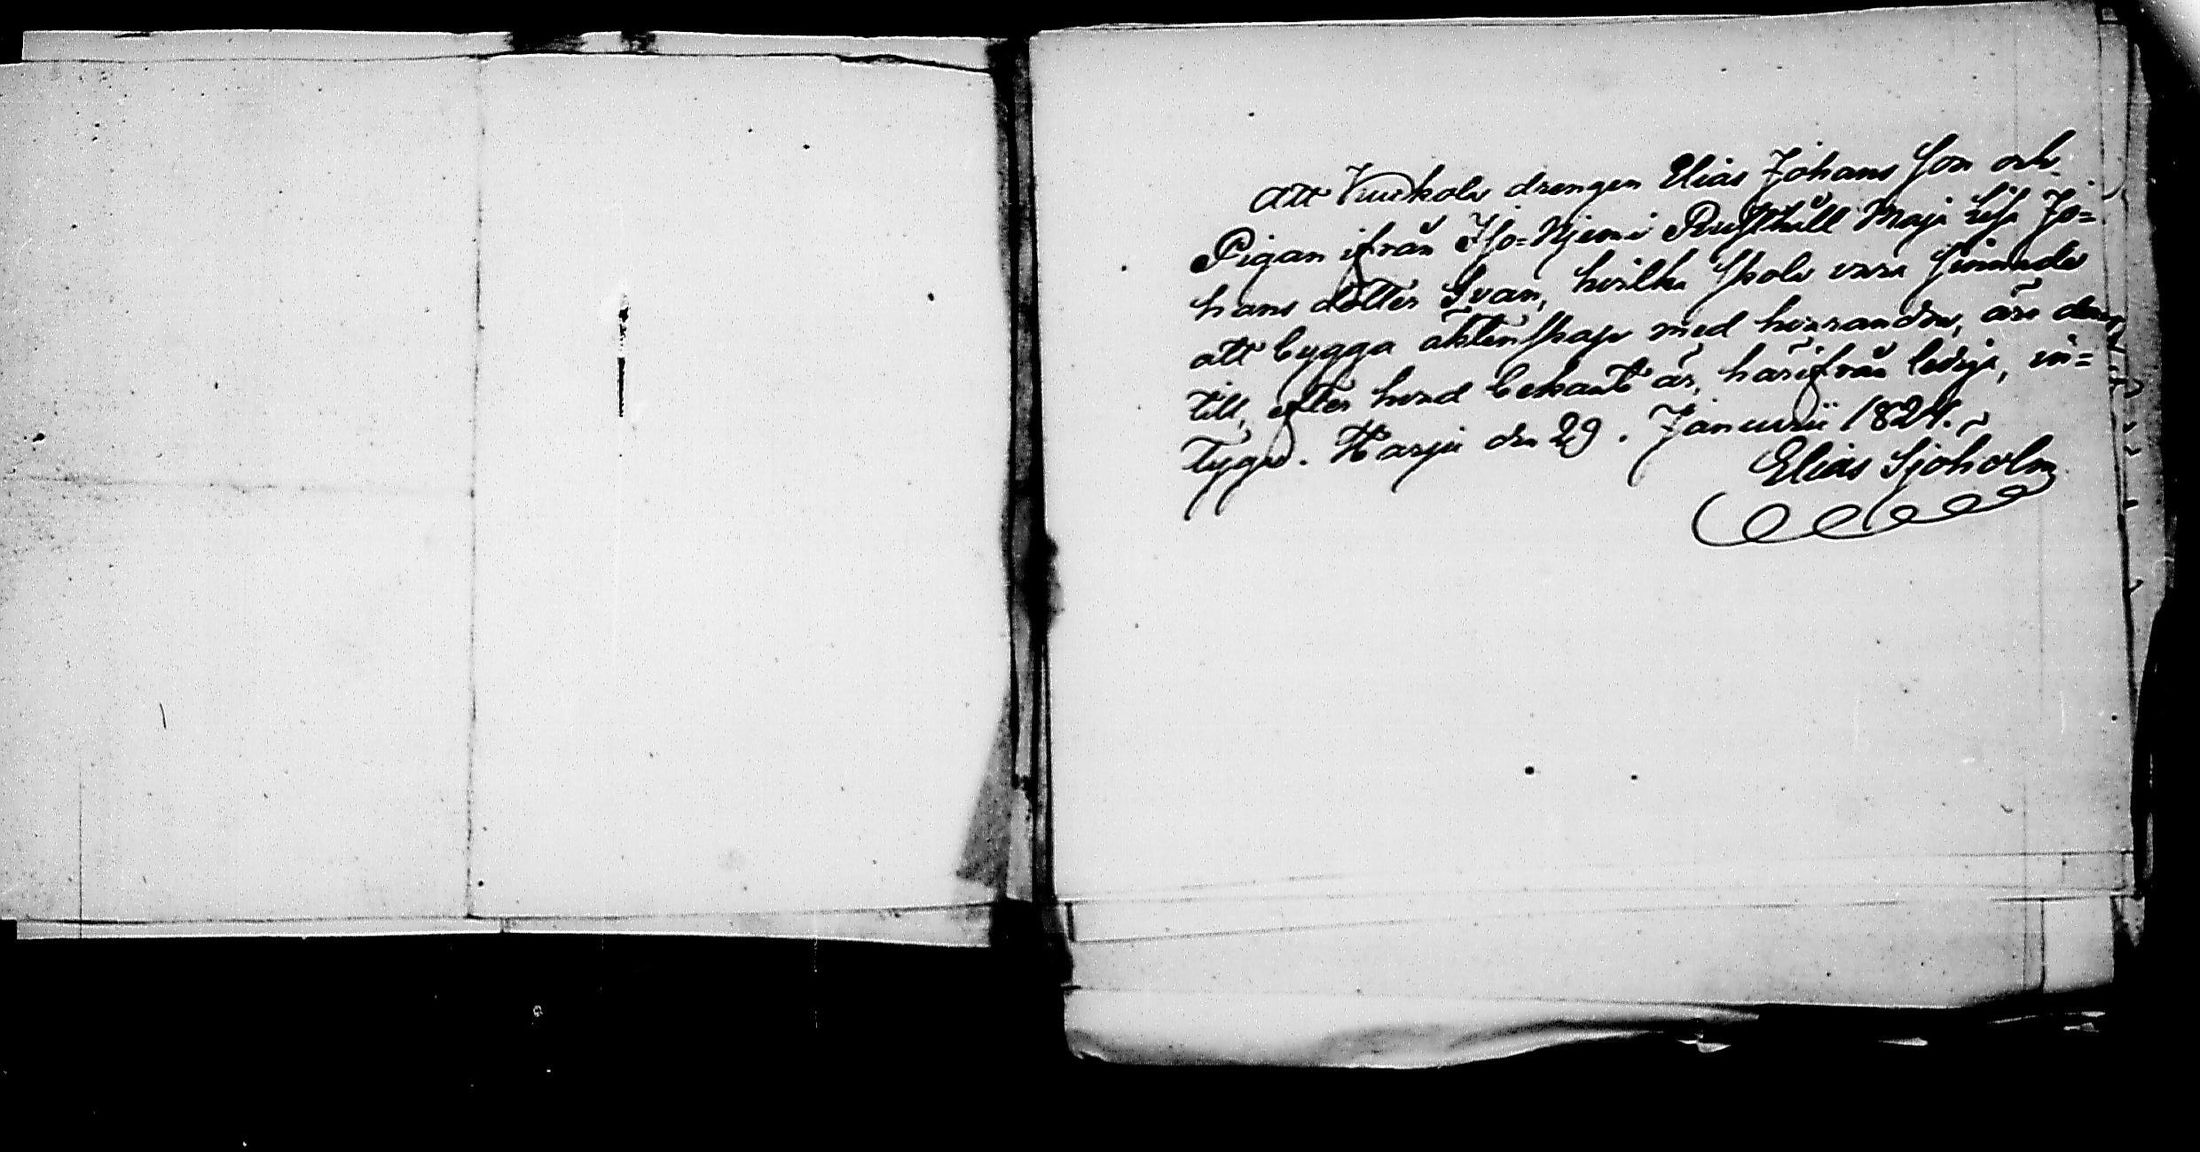 Att Kuckola drengen Elias Johans Son och
Pigan ifrån Iso=Njemi Rusthåll Maja Lisa Jo=
hans dotter Svan, hvilka skola vara sinnade
att bygga äktenskap med hvarandra, äro der
till, efter hvad bekant är, härifrån lediga, in=
tygas. Harju den 29. Januarii 1824.
Elias Sjöholm